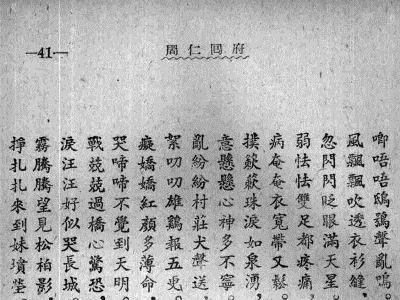 —41—
周仁囘府
唧唔唔鴟鴞聲亂鳴。
風飄飄吹透衣衫縫,
忽閃閃眨眼滿天星。
弱怯怯雙足都疼痛,
病奄奄衣寬帶又鬆。
撲簌簌珠淚如泉湧,
意懸懸心神多不寧。
亂紛紛村莊犬聲送,
絮叨叨雄鷄報五更。
癡嬌嬌紅顏多薄命,
哭啼啼不覺到天明。
戰兢兢過橋心驚恐,
淚汪汪好似哭長城。
霧騰騰望見松柏影,
掙扎扎來到妹墳塋。